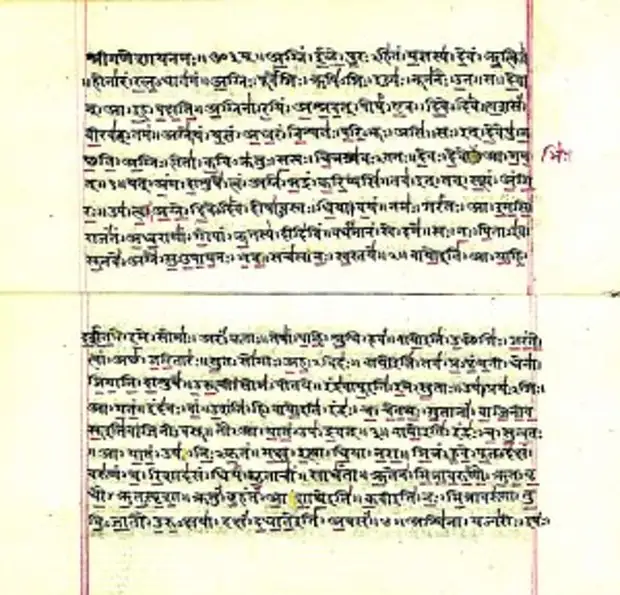 श्रीगणेशायनमः॥ॐ॥अग्निं।ईळे।पुरःऽहितं।यज्ञस्य।देवं।ऋत्विजं
॥होतारं।रत्नऽधातमं॥अग्निः।पूर्वेभिः।ऋषिऽभिः।ईड्यः।नूतनैः।उत॥सः।देवा
न्।आ।इह।वक्षति॥अग्निना।रयिं।अश्नवत्।पोषं।एव।दिवेऽदिवे॥यशसं
वीरवत्ऽतमं॥अग्ने।यं।यज्ञं।अध्वरं।विश्वतः।परिऽभूः।असि॥सः।इत्।देवेषु।ग
च्छति॥अग्निः।होता।कविऽक्रतुः।सत्यः।चित्रश्रवःऽतमः॥देवः।देवे।आ।गम भिः
त्॥१॥यत्।अंग।दाशुषे।त्वं।अग्ने।भद्रं।करिष्यसि॥तव।इत्।तत्।सत्यं।अंगि
रः॥उप।त्वा।अग्ने।दिवेऽदिवे।दोषाऽवस्तः।धिया।वयं॥नमः।भरंतः।आ।इमसि
राजंतं।अध्वराणां।गोपां।ऋतस्य।दीदिविं॥वर्धमानं।स्वे।दमे॥सः।नः।पिताऽइव
सूनवे।अग्ने।सुऽउपायनः।भव॥सचस्व।नः।स्वस्तये॥२॥वायोइति।आ।याहि।
दर्शत।इमे।सोमाः।अरंऽकृताः॥तेषां।पाहि।श्रुधि।हवं॥वायोइति।उक्थेभिः।जरंते
त्वां।अच्छ।जरितारः॥सुतऽसोमाः।अहःऽविदः॥वायोइति।तव।प्रऽपृंचती।धेना।
जिगाति।दाशुषे॥उरूची।सोमऽपीतये॥इंद्रवायूइति।इमे।सुताः।उप।प्रयःऽभिः।
आ।गतं॥इंदवः।वां।उशंति।हि॥वायोइति।इंद्रः।च।चेतथः।सुतानां।वाजिनीव
सूइतिवाजिनीऽवसू॥तौ।आ।यातं।उप।द्रवत्॥३॥वायोइति।इंद्रः।च।सुन्वतः
॥आ।यातं।उप।निःऽकृतं॥मक्षु।इत्था।धिया।नरा॥मित्रं।हुवे।पूतऽदक्षं
वरुणं।च।रिशादसं॥धियं।घृताचीं।साधंता॥ऋतेन।मित्रावरुणौ।ऋतऽवृ
धौ।ऋतऽस्पृशा॥क्रतुं।बृहंतं।आशाथेइति॥कवीइति।नः।मित्रावरुणा।तु
विऽजातौ।उरुऽक्षया॥दक्षं।दधातेइति।अपसं॥४॥अश्विना।यज्वरीः।इषः